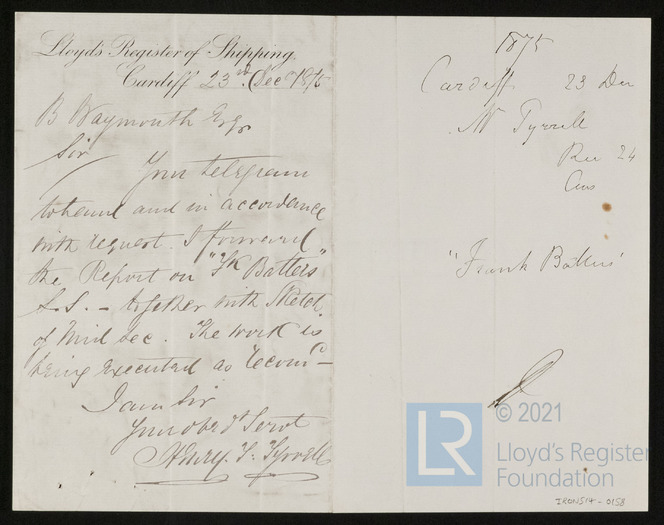 Lloyd's Register of Shipping,
Cardiff 23rd Dec 1875
B Waymouth Esq
Sir
Your telegram
to hand and in accordance
with request. I forward
the Report on "Fk Batters"
S.S. - together with Sketch
of Mid Sec. The work is
being executed as recomd -
I am Sir
Your obedt Servt
Henry. T. Tyrrell
1875
Cardiff 23 Dec
Mr Tyrrell
Rec 24
Ans
"Frank Batters"
LR
© 2021
Lloyd's Register
Foundation
IRONS17-0158